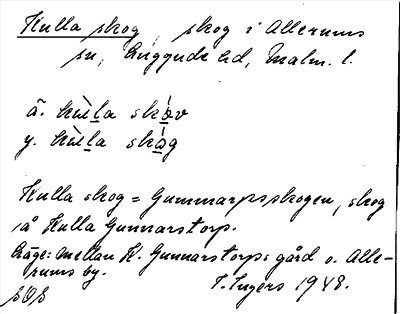 Kulla skog, skog i Allerums
sn, Luggude hd, Malm. l.
ä. kùl̲la skǻ̲v
y. kùl̲la skǻ̲g
Kulla skog = Gunnarpsskogen, skog
på Kulla Gunnarstorp.
Läge: mellan K. Gunnarstorps gård o. Alle-
rums by.
I. Ingers 1948.